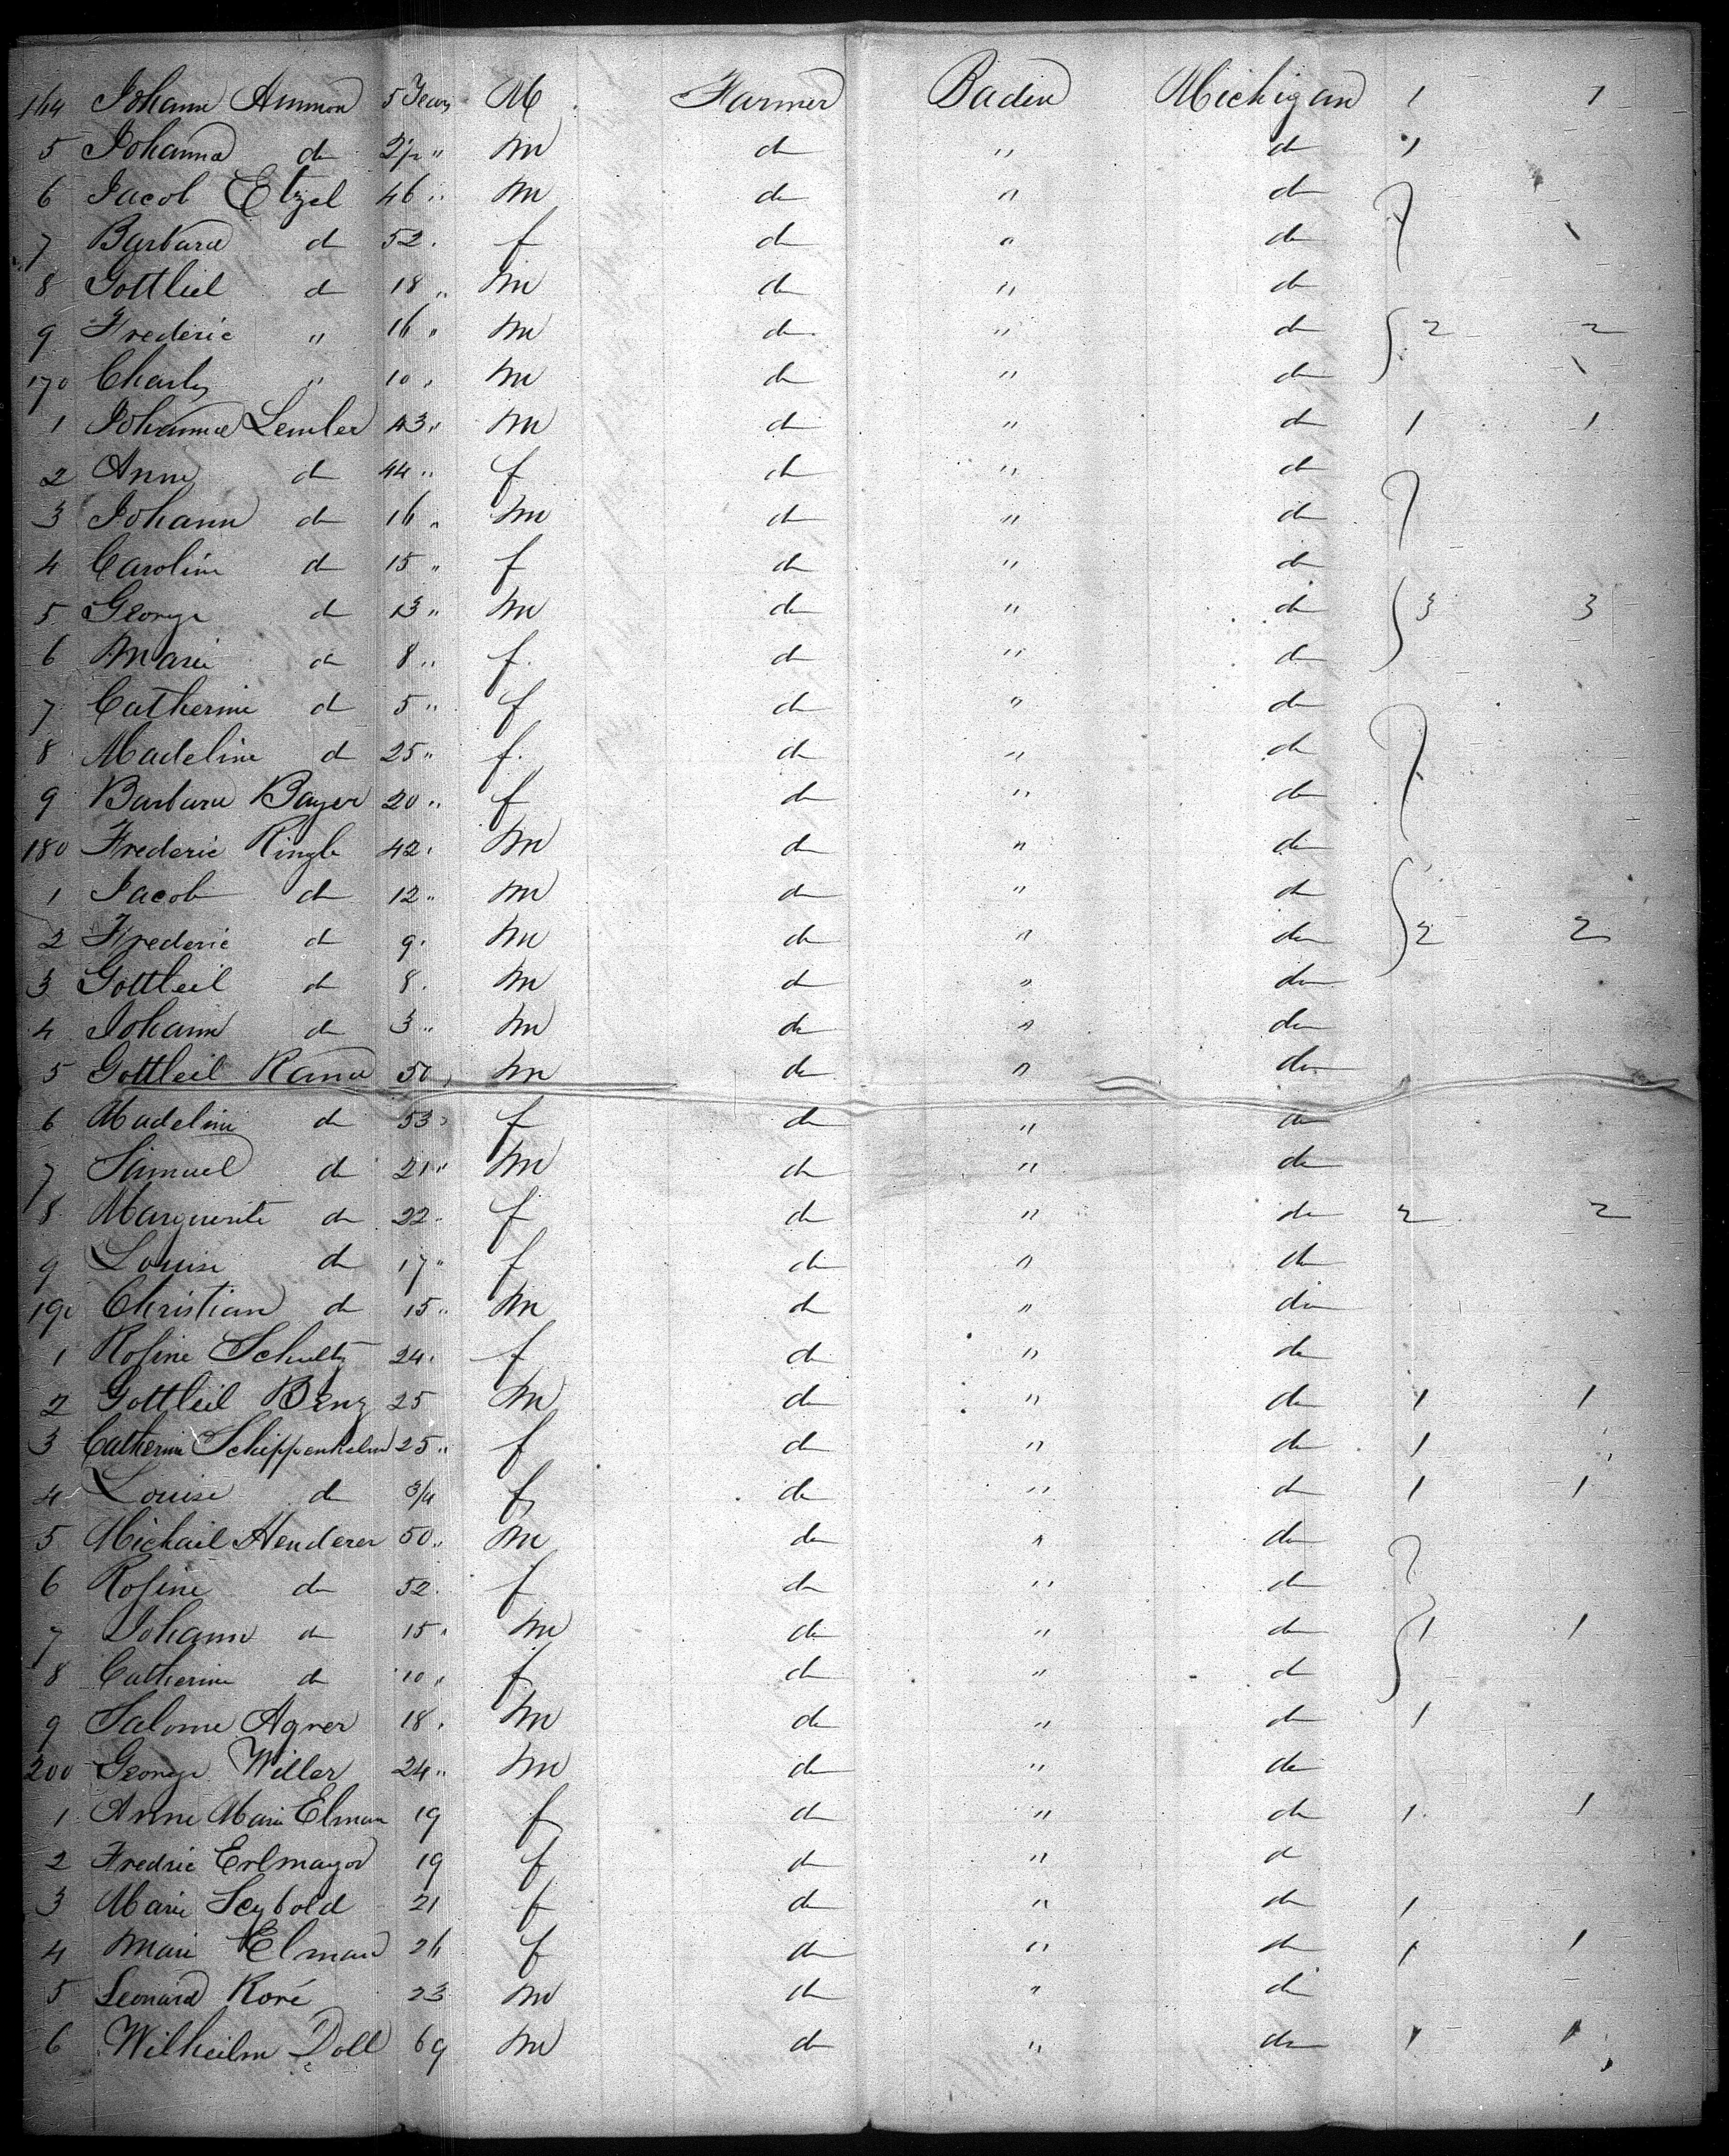 164 Johann Ammon 5 Years M Farmer Baden Michigan 1 1
5 Johanna do 2½ " m do " do 1
6 Jacob Etzel 46 " m do " do
7 Barbara do 52 " f do " do
8 Gottlieb do 18 " m do " do
9 Frederic " 16 " m do " do 2 2
170 Charles " 10 " m do " do
1 Johanna Lember 43 " m do " do 1 1
2 Anne do 44 " f do " do
3 Johann do 16 " m do " do
4 Caroline do 15 " f do " do
5 George do 13 " m do " do 3 3
6 Marie do 8 " f do " do
7 Catherine do 5 " f do " do
8 Madeline do 25 " f do " do
9 Barbara Bayer 20 " f do " do
180 Frederic Ringle 42 " m do " do
1 Jacob do 12 " m do " do
2 Frederic do 9 " m do " do 2 2
3 Gottleil do 8 " m do " do
4 Johann do 3 " m do " do
5 Gottleil Rama 50 " m do " do
6 Madeline do 53 " f do " do
7 Samuel do 21 " m do " do
8 Marguerite do 22 " f do " do 2 2
9 Louise do 17 " f do " do
190 Christian do 15 " m do " do
1 Rosine Schultz 24 " f do " do
2 Gottleil Benz 25 m do " do 1 1
3 Catherine Schippenhelm 25 " f do " do 1
4 Louise do 3/4 f do " do 1 1
5 Michail Henderer 50 " m do " do
6 Rosine do 52 f do " do
7 Johann do 15 " m do " do 1 1
8 Catherine do 10 " f do " do
9 Salome Agner 18 " m do " do 1
200 George Willer 24 " m do " do
1 Anne Marie Elman 19 f do " do 1 1
2 Fredric Erlmayor 19 f do " do
3 Marie Seybold 21 f do " do 1
4 Marie Elman 26 f do " do 1 1
5 Leonard Roré 23 m do " do
6 Wilheilm Doll 69 m do " do 1 1